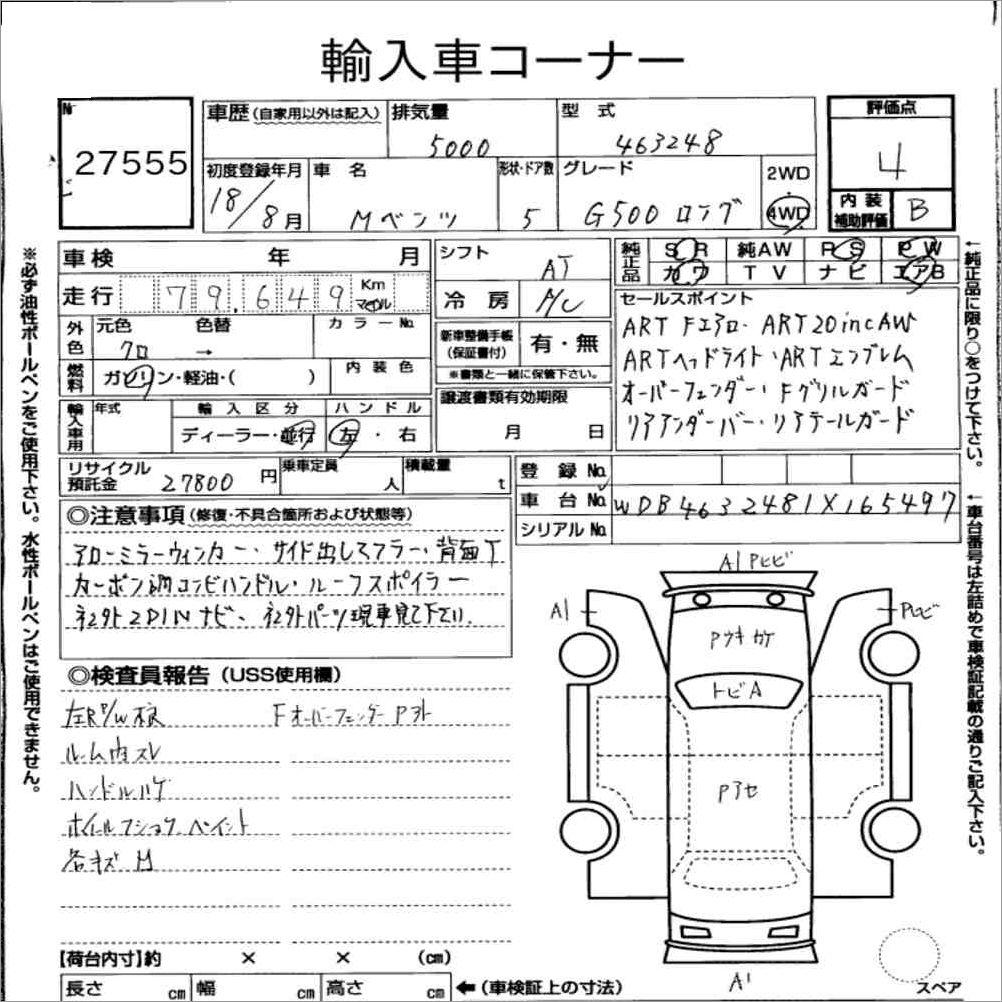 輸入車コーナー
No
27555
車歴 (自家用以外は記入)
排気量 5000
型式 463248
評価点 4
初度登録年月 18/8月
車名 Mベンツ
形状・ドア数 5
グレード G500 ロング
2WD・4WD
内装補助評価 B
車検 年 月
シフト AT
純正品 SR 純AW PS PW
カワ TV ナビ エアB
走行 79,649 Km マイル
冷房 A/C
セールスポイント
ART Fエアロ・ART20incAW
ARTヘッドライト・ARTエンブレム
オーバーフェンダー・Fグリルガード
リアアンダーバー・リアテールガード
外色 元色 クロ 色替 → カラーNo.
新車整備手帳(保証書付) 有・無
※書類と一緒に保管下さい。
燃料 ガソリン・軽油・( )
内装色
譲渡書類有効期限
月 日
輸入車用 年式 輸入区分 ハンドル
ディーラー・並行 左・右
リサイクル預託金 27800円
乗車定員 人
積載量 t
登録No.
車台No. WDB4632481X165497
シリアルNo.
◎注意事項 (修復・不具合箇所および状態等)
アローミラーウィンカー・サイド出しマフラー・背面T
カーボン調コンビハンドル・ルーフスポイラー
社外2DINナビ、社外パーツ現車見て下さい.
◎検査員報告 (USS使用欄)
左RP/W様 Fオーバーフェンダー P外
ルーム内スレ
ハンドルハゲ
ホイールフショク ペイント
各キズ M
A1 Pヒビ
A1
Pヒビ
Pウキ カケ
トビA
Pアセ
A1
スペア
【荷台内寸】約 × × (cm)
長さ cm 幅 cm 高さ cm ←(車検証上の寸法)
※必ず油性ボールペンをご使用下さい。水性ボールペンはご使用できません。
←純正品に限り○をつけて下さい。
←車台番号は左詰めで車検証記載の通りご記入下さい。